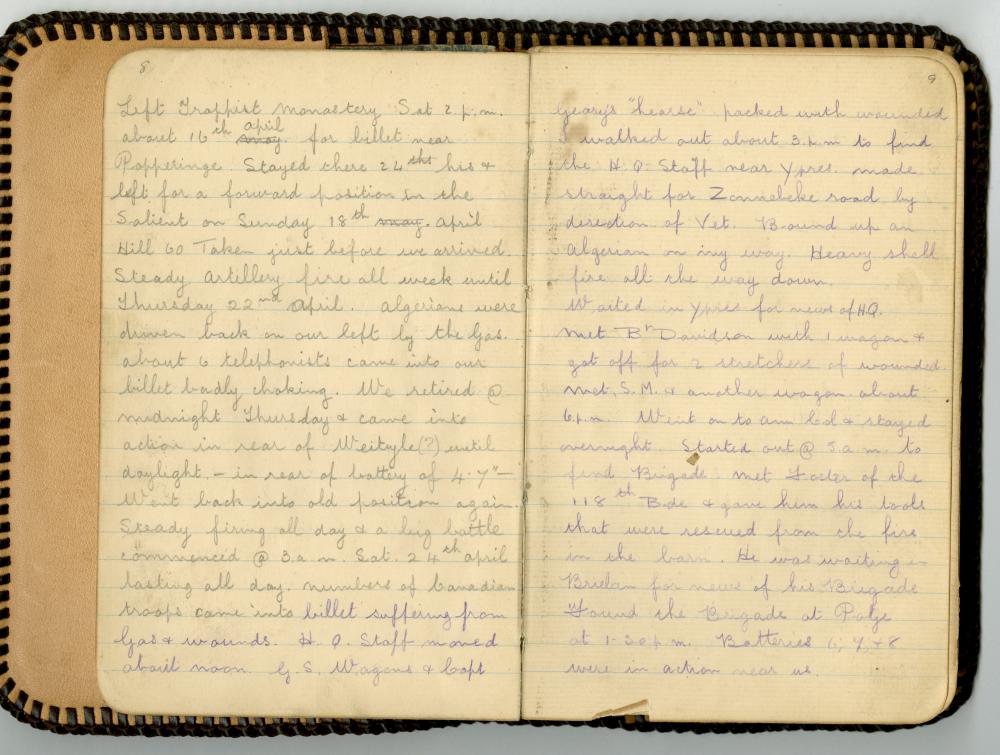 8
Left Trappist monastery Sat 2 p.m.
about 16th may april for billet near
Popperinge. Stayed there 24 hrs &
left for a forward position in the
Salient on Sunday 18th may. April
Hill 60 Taken just before we arrived.
Steady Artillery fire all week until
Thursday 22nd April. Algerians were
driven back on our left by the Gas.
about 6 telephonists came into our
billet badly choking. We retired @
midnight Thursday & came into
action in rear of Weityle(?) until
daylight – in rear of battery of 4.7" –
Went back into old position again.
Steady firing all day & a big battle
commenced @ 3.a.m. Sat. 24th april
lasting all day. numbers of Canadian
troops came into billet suffering from
Gas & wounds. H.Q. Staff moved
about noon. G.S. Wagons & Capt
9
Geary's "hearse" packed with wounded
I walked out about 3.p.m to find
the H.Q. Staff near Ypres. made
straight for Zonnebeke road by
direction of Vet. Bound up an
Algerian on my way. Heavy shell
fire all the way down.
Waited in Ypres for news of HQ.
Met Br Davidson with 1 wagon &
got off for 2 stretchers of wounded.
Met, S.M. & another wagon about
6p.m. Went on to am Col & stayed
overnight. Started out @ 5.a.m. to
find Brigade. met Foster of the
118th Bde & gave him his tools
that were rescued from the fire
in the barn. He was waiting in
Brielan for news of his Brigade
Found the Brigade at Polge
at 1-30 p.m. Batteries 6, 7, & 8
were in action near us.